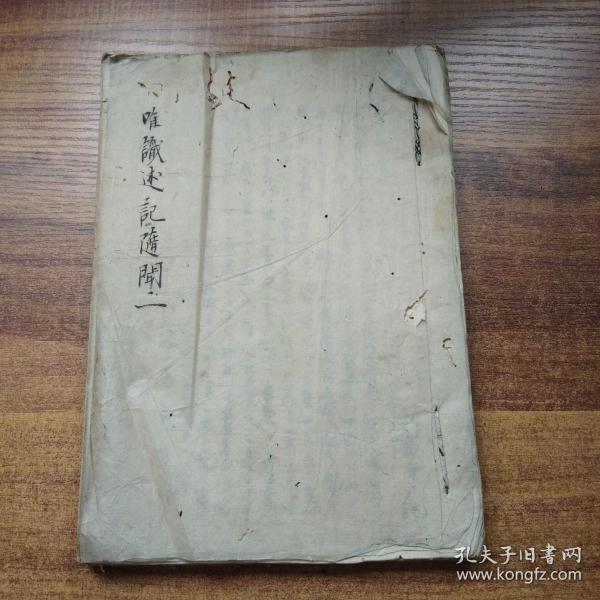 唯識述記隨聞二
孔夫子旧書网
www.kongfz.com